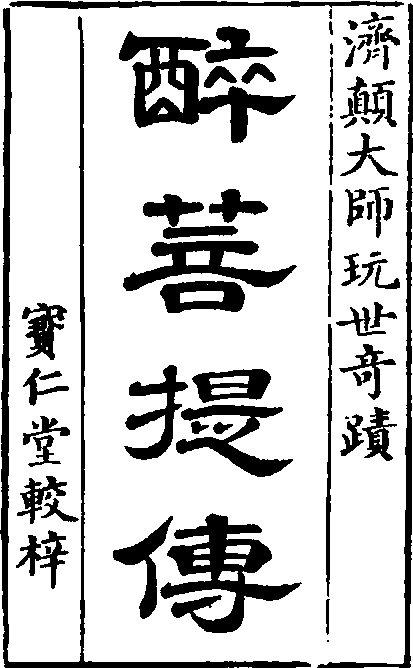 濟顛大師玩世奇蹟
醉菩提傳
寶仁堂較梓